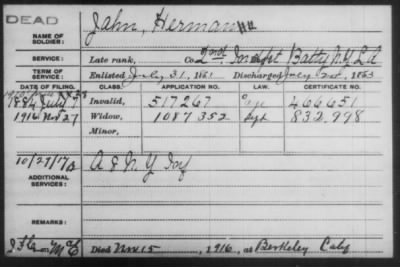 DEAD
NAME OF SOLDIER: Jahn, Herman
SERVICE: Late rank, Co. 2nd Indpt Batty N.Y. L A
TERM OF SERVICE: Enlisted July 31, 1861 Discharged 1863
DATE OF FILING. CLASS. APPLICATION NO. LAW. CERTIFICATE NO.
1884 July Invalid, 517267 466651
1916 Nov 27 Widow, 1087352 Sept 832,998
Minor,
10/27/17 A & N. Y Inf
ADDITIONAL SERVICES:
REMARKS:
Died Nov 15, 1916, at Berkeley Calif